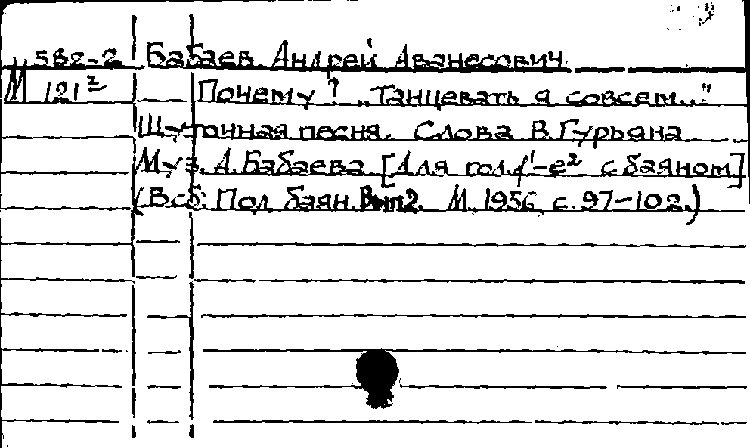 582-2 Бабаев Андрей Аванесович
М 121² Почему? „Танцевать я совсем..."
Шуточная песня. Слова В. Гурьяна
Муз. А. Бабаева [Для гол. f'-e² с баяном]
(В сб: Пол баян. Вып 2. М. 1956 с. 97-102.)